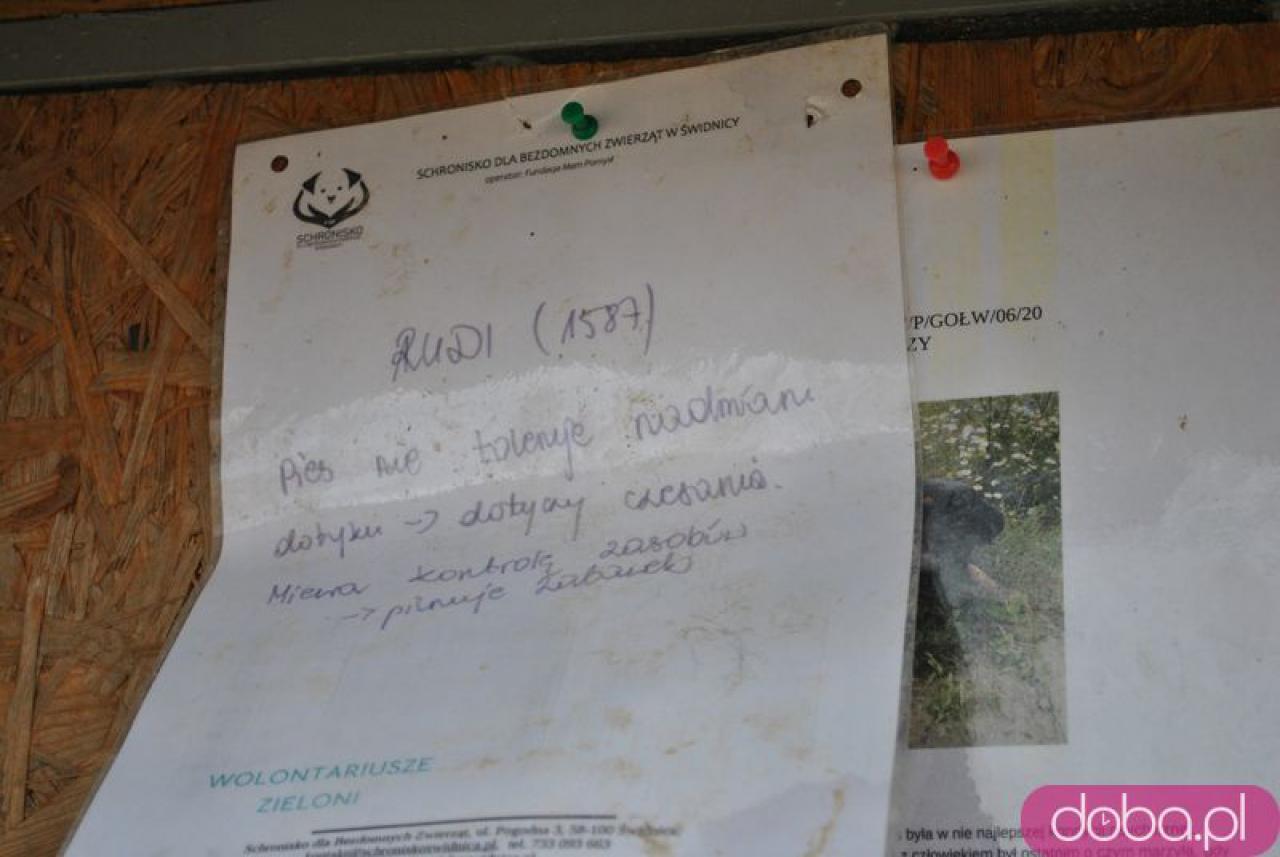 SCHRONISKO DLA BEZDOMNYCH ZWIERZĄT W ŚWIDNICY
operator: Fundacja Mam Pomysł
SCHRONISKO
RUDI (1587)
Pies nie toleruje nadmiaru
dotyku -> dotyczy czesania.
Miewa kontrolę zasobów
-> pilnuje zabawek
WOLONTARIUSZE
ZIELONI
Schronisko dla Bezdomnych Zwierząt, ul. Pogodna 3, 58-100 Świdnica
tel. 733 093 663
/P/GOŁW/06/20
ZY
była w nie najlepszej
z człowiekiem był ostatnim o czym marzyła
doba.pl